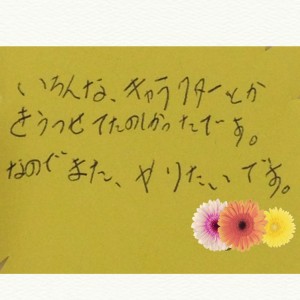 いろんな、キャラクターとか
をうつせてたのしかったです。
なのでまた、やりたいです。